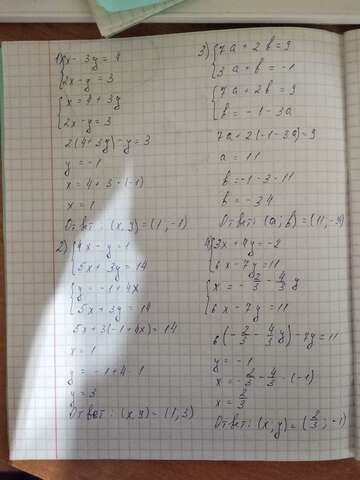 1) {x - 3y = 4
{2x - y = 3
{x = 4 + 3y
{2x - y = 3
2(4 + 3y) - y = 3
y = -1
x = 4 + 3 · (-1)
x = 1
Ответ: (x, y) = (1, -1)
2) {4x - y = 1
{5x + 3y = 14
{y = -1 + 4x
{5x + 3y = 14
5x + 3(-1 + 4x) = 14
x = 1
y = -1 + 4 · 1
y = 3
Ответ: (x, y) - (1, 3)
3) {7a + 2b = 9
{3a + b = -1
{7a + 2b = 9
{b = -1 - 3a
7a + 2(-1 - 3a) = 9
a = 11
b = -1 - 3 · 11
b = -34
Ответ: (a; b) = (11, -34)
4) {3x + 4y = -2
{6x - 7y = 11
{x = -2/3 - 4/3 y
{6x - 7y = 11
6(-2/3 - 4/3 y) - 7y = 11
y = -1
x = -2/3 - 4/3 · (-1)
x = 2/3
Ответ: (x, y) = (2/3, -1)